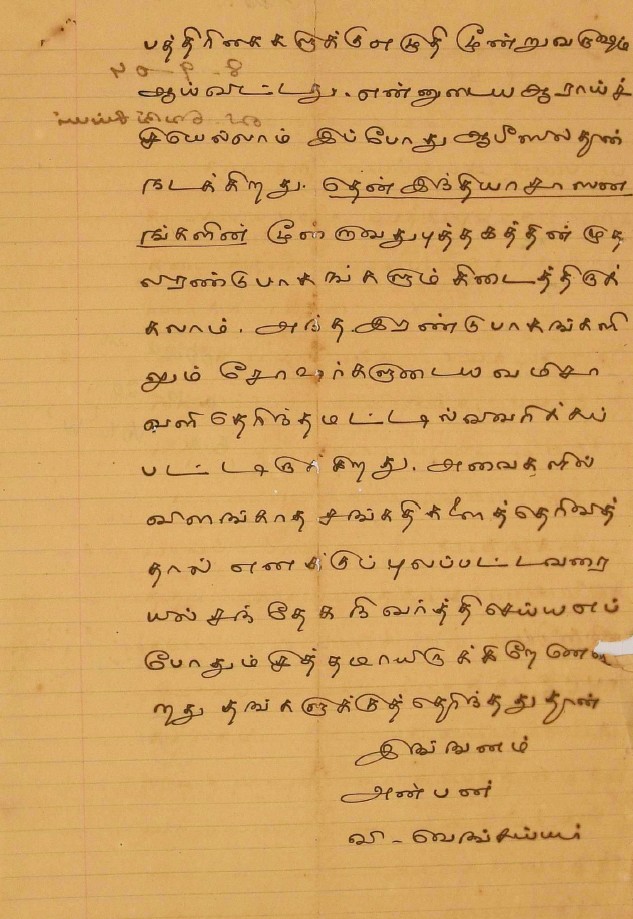 பத்திரிகைகளுக்கு எழுதி மூன்று வருஷம்
ஆய்விட்டது. என்னுடைய ஆராய்ச்
சியெல்லாம் இப்போது ஆபீஸில்தான்
நடக்கிறது. தென் இந்தியா சாஸன
ங்களின் மூன்றாவது புத்தகத்தின் முத
லிரண்டு பாகங்களும் கிடைத்திருக்
கலாம். அந்த இரண்டு பாகங்களி
லும் சோழர்களுடைய வமிசா
வளி தெரிந்த மட்டில் விவரிக்கப்
பட்டிருக்கிறது. அவைகளில்
விளங்காத சங்கதிகளைத் தெரிவித்
தால் எனக்குப் புலப்பட்டவரை
யில் சந்தேக நிவர்த்தி செய்ய எப்
போதும் சித்தமாயிருக்கிறேனென்
றது தங்களுக்குத் தெரிந்ததுதான்
இங்ஙனம்
அன்பன்
வி. வெங்கய்யர்